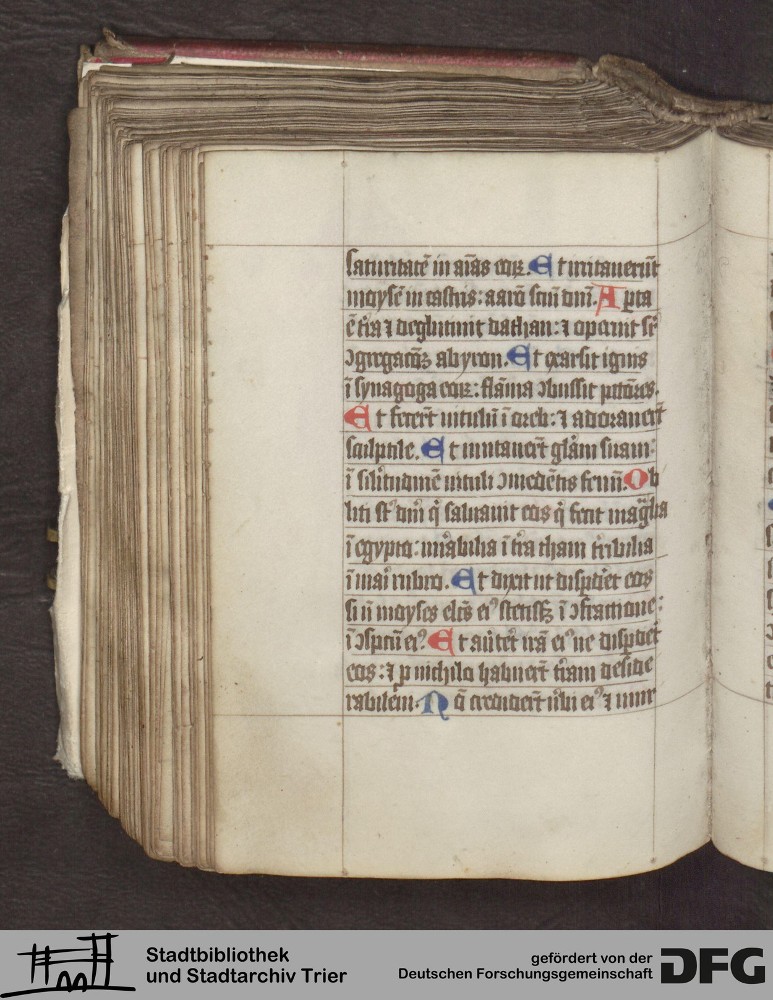 saturitatē in aīas eoꝝ. Et irritauerūt
moysē in castris: aarō scm̄ dnī. Apta
ē tr̄a ⁊ deglutiuit dathan: ⁊ opuit sr̄
ꝯgregacōꝫ abyron. Et exarsit ignis
ī synagoga eoꝝ: flāma ꝯbussit pctōres.
Et fecer̄t vitulū ī oreb: ⁊ adorauer̄t
sculptile. Et mutauer̄t glām suam:
ī silitudinē vituli ꝯmedētis fenū. Ob
liti st̄ dm̄ q̄ saluauit eos q̄ fecit mag̃lia
ī egypto: mirabilia ī tr̄a cham tr̄ibilia
ī mari rubro. Et dixit ut dispder̄et eos
si nō moyses elcūs eiꝰ stetissꝫ ī ꝯfractione:
ī ꝯspctū eiꝰ. Et auter̄et irā eiꝰ ne dispdet
eos: ⁊ p nichilo habuer̄t tr̄am deside
rabilem. Nō credider̄t v̄bis eiꝰ ⁊ mur
Stadtbibliothek
und Stadtarchiv Trier
gefördert von der
Deutschen Forschungsgemeinschaft
DFG